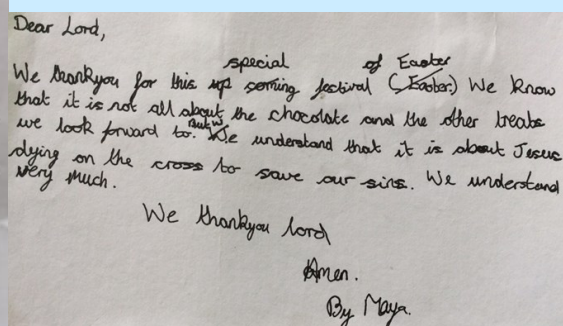 Dear Lord,
special of Easter
We thankyou for this up coming festival (Easter.) We know
that it is not all about the chocolate and the other treats
But w
we look forward to. We understand that it is about Jesus
dying on the cross to save our sins. We understand
very much.
We thankyou lord
Amen.
By Maya.